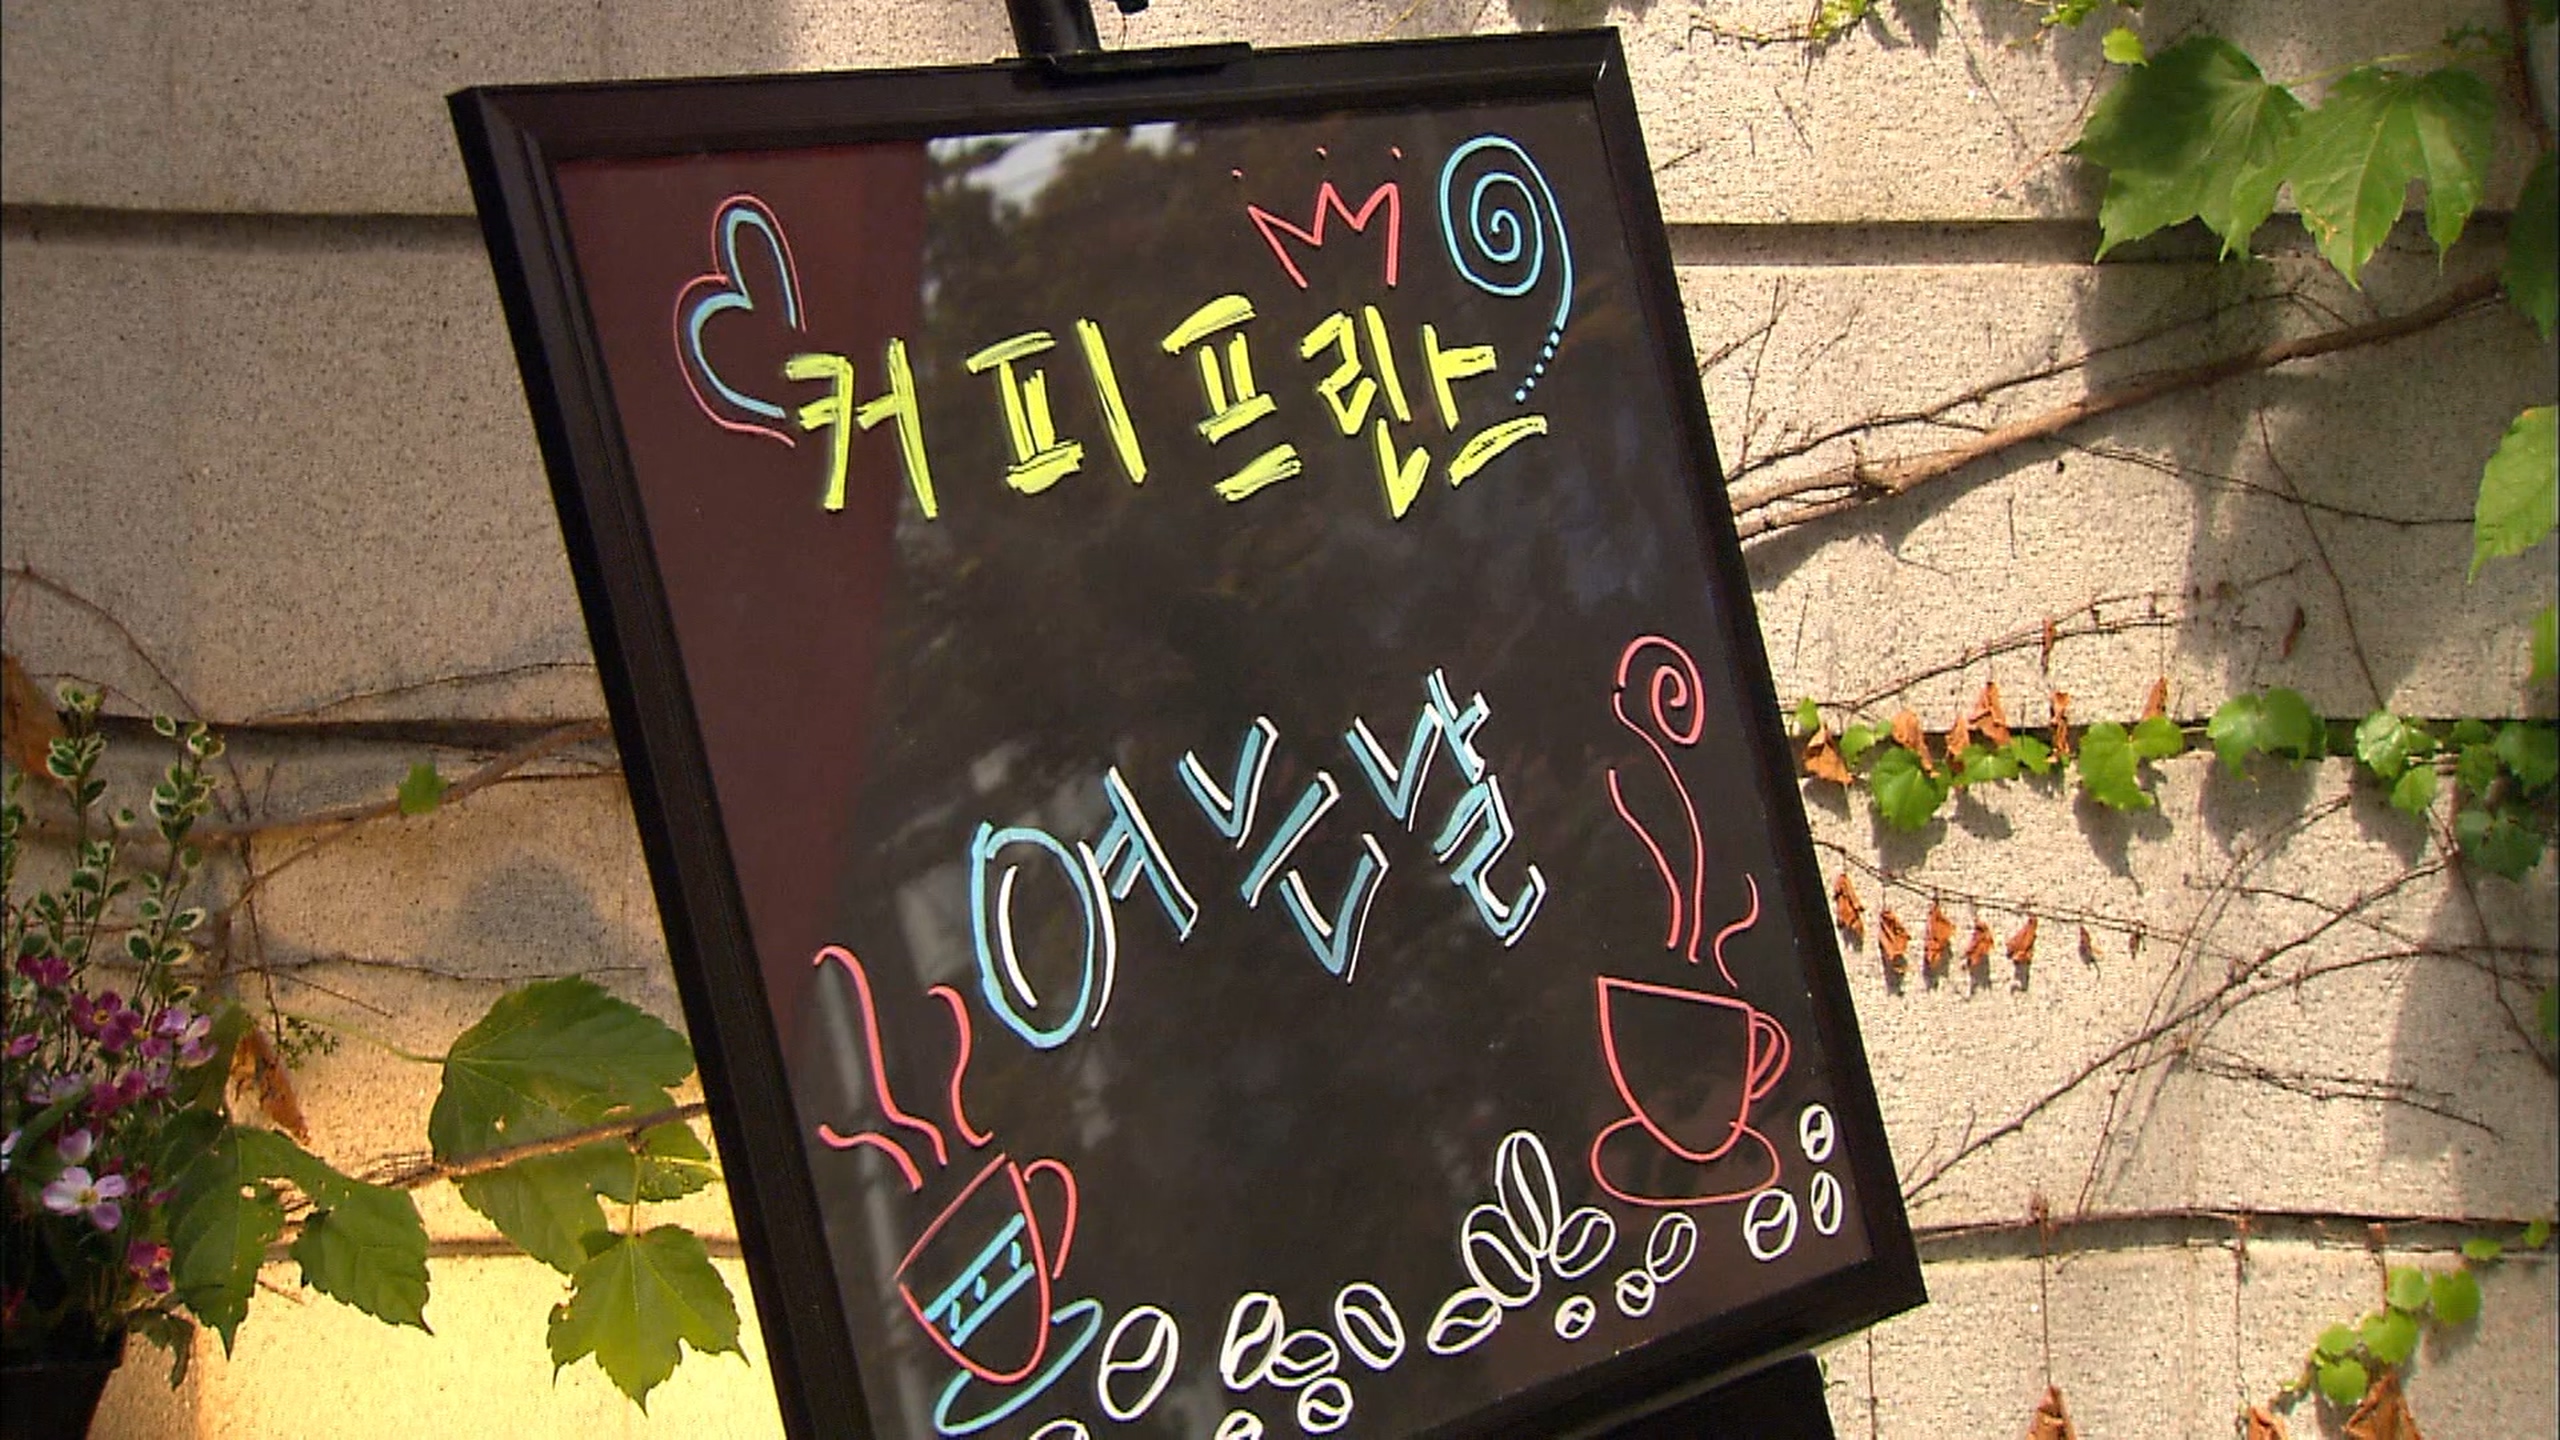 커피프린스
여는날